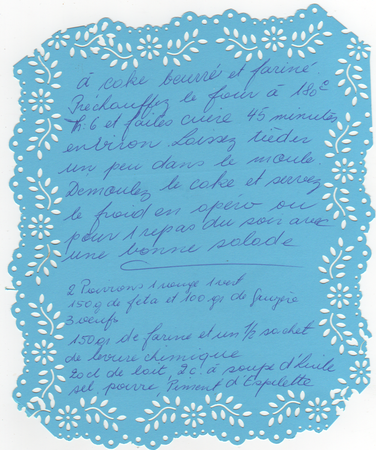 à cake beurré et fariné
Préchauffez le four à 180°C
th: 6 et faites cuire 45 minutes
environ. Laissez tiédir
un peu dans le moule.
Demoulez le cake et servez
le froid en apero ou
pour 1 repas du soir avec
une bonne salade
2 Poivrons 1 rouge 1 vert
150g de feta et 100 grs de Gruyère
3 oeufs
150 grs de farine et un 1/2 sachet
de levure chimique
20cl de lait, 2c. à soupe d'huile
sel poivre, Piment d'Espelette